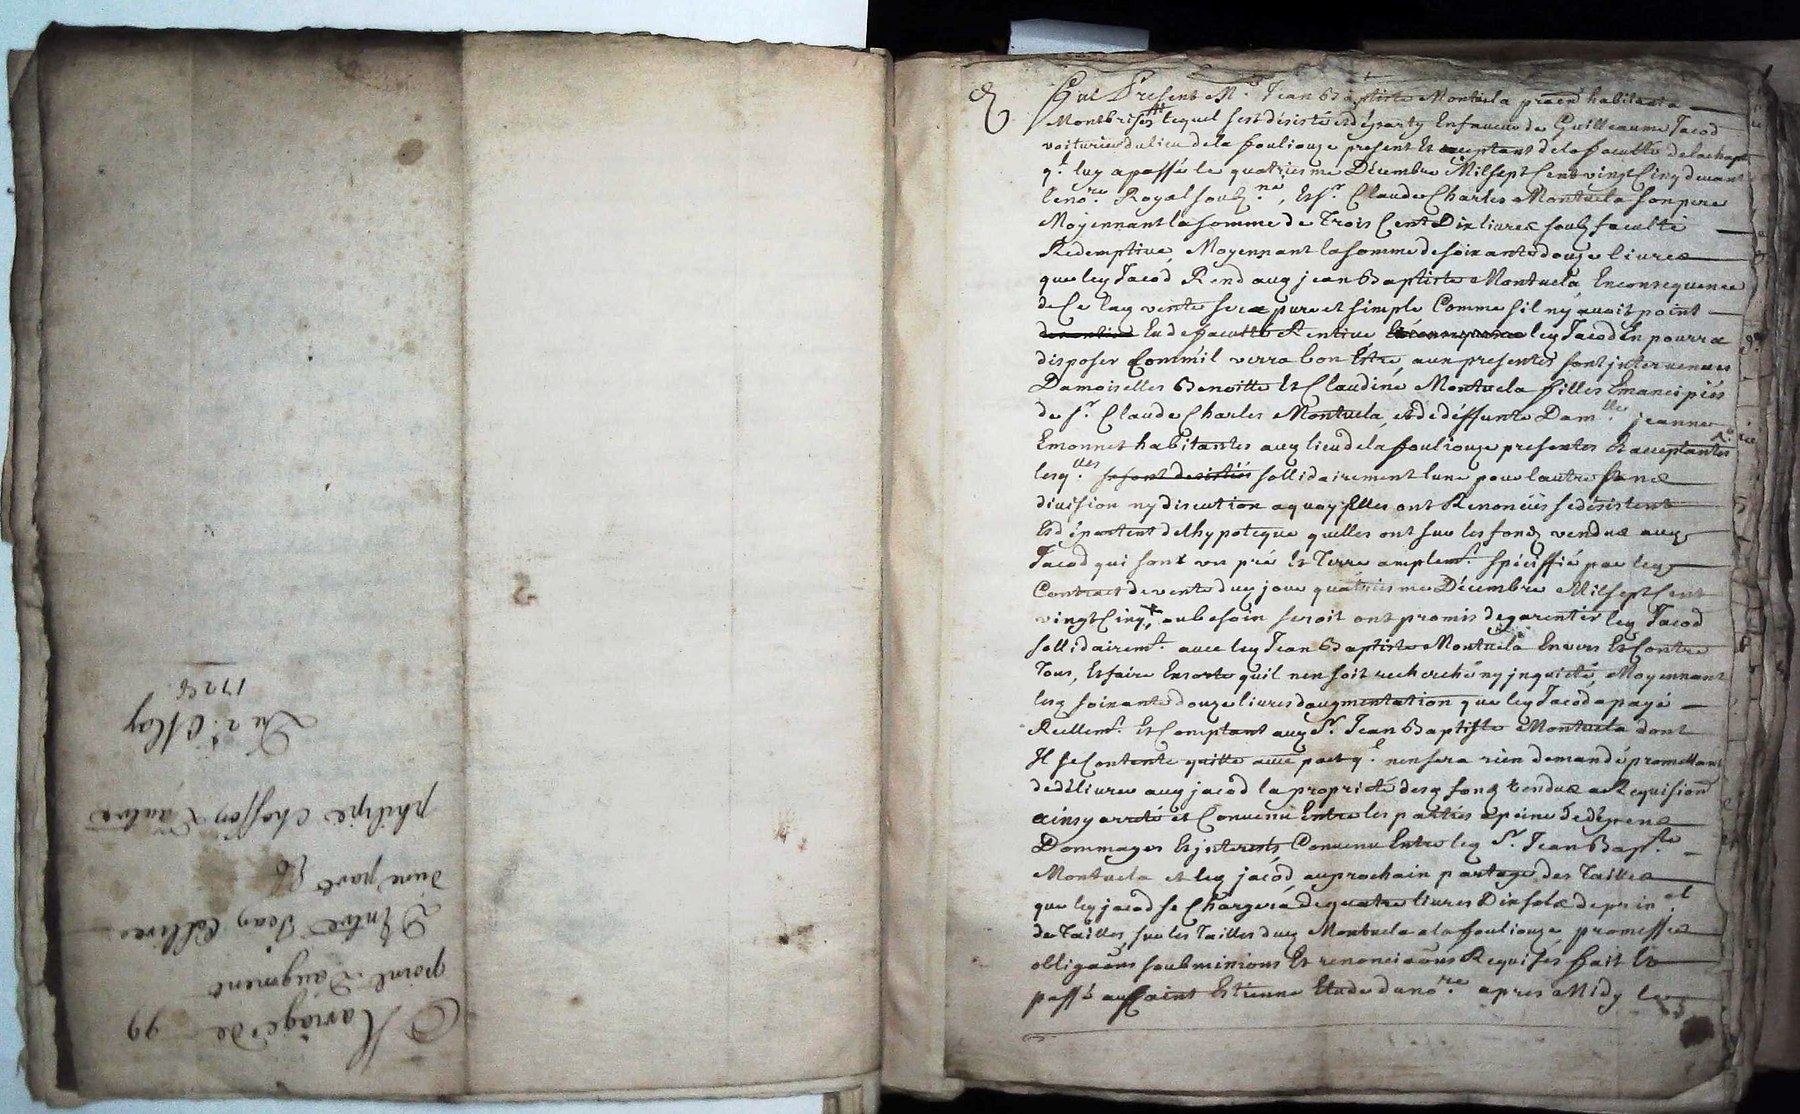 Mariage de 99
point d'augment
D'Entre Jean
d'une part Et
philipe Choffon d'autre
Du 2e. May
172
Fut Present Mr. Jean Baptiste Montuela habitant a
Montbrison lequel sest désisté et départy Enfaveur de Guilleaume Jacod
voiturier du lieu de la fouliouze present Et acceptant de la faculté de
ql. luy a passé le quatriesme Décembre Mil sept Cent vingt Cinq devant
le nore. Royal soubzne., Et Sr. Claude Charles Montuela son pere
Moyennant la somme de Trois Cent Dix livres soubz faculté
Redemptive, Moyennant la somme de soixante douze livres
que ley Jacod Rend auy jean Baptiste Montuela, En consequence
de Ce lay vente sera pure et simple Comme sil ny avoit point
Eu de faculté Rentive ley Jacod En pourra
disposer Comm'il verra bon Estre, aux presentes sont jntervenues
Damoiselles Benoitte Et Claudine Montuela filles Emancipées
de Sr. Claude Charles Montuela, et de déffunte Damlle. jeanne
Emonnet habitantes auy lieu de la fouliouze presentes Et acceptantes
lesqlles. se sont desistées sollidairement lune pour lautre sans
division ny discution a quoy Elles ont Renoncées se désistent
Et départent de lhypoteque quelles ont sur les fondz vendus auy
Jacod qui sont un pré Et Terre amplemt. spéciffié par ley
Contract de vente duy jour quatriesme Décembre Mil sept Cent
vingt Cinq, au besoin seroit ont promis de garentir ley Jacod
sollidairemt. avec ley Jean Baptiste Montuela Envers Et Contre
Tous, Et faire En sorte quil nen soit recherché ny jnquieté, Moyennant
lesq soixante douze livres daugmentation que ley Jacod a payé
Reellemt. Et Comptant auy Sr. Jean Baptiste Montuela dont
Il se Contente quitte avec pact ql. nen sera rien demandé promettant
de délivrer auy jacod la proprieté desq fondz vendus a Requision
ainsy arrété et Convenu Entre les parties a peine de dépens
Dommages Et jnterests, Convenu Entre ley Sr. Jean Bapste.
Montuela et ley jacod au prochain partage des Tailles
que ley jacod se Chargera de quatre livres Dix sols de prin al
de Tailles sur les Tailles duy Montuela a la fouliouze promesses
obligaons soubmisions Et renonciaons Requises fait Et
passé au Saint Estienne Etude du nore. apres Midy le